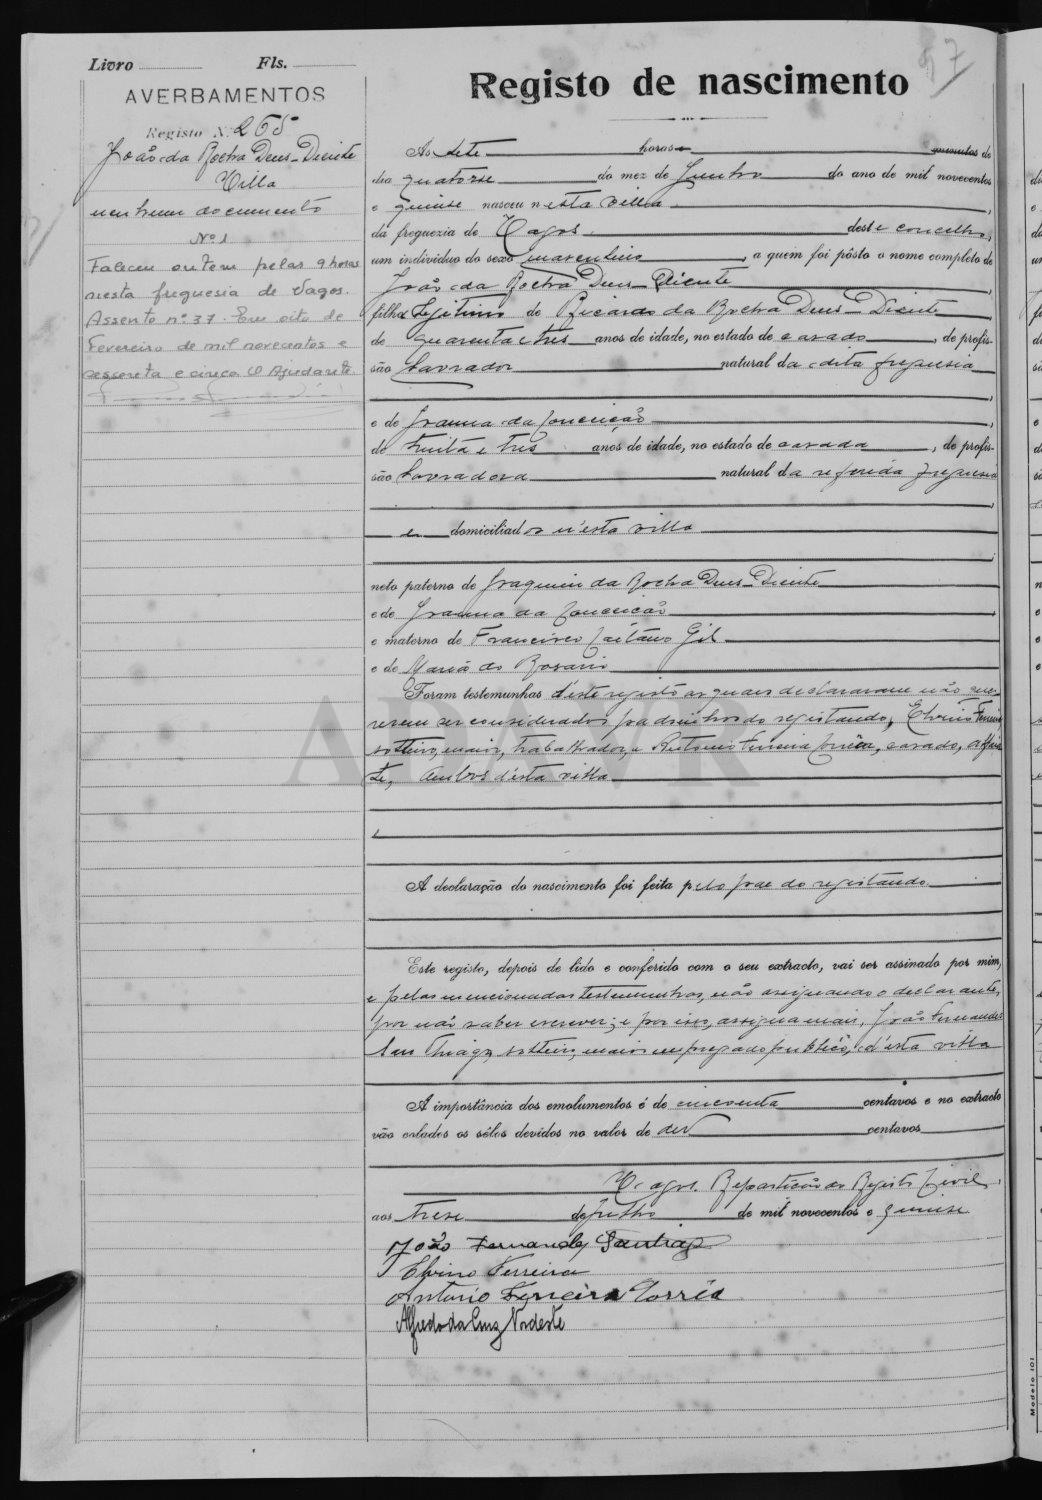 Livro Fls.
AVERBAMENTOS
Registo N.º 265
João da Rocha Deus-Dicente
Villa
nenhum documento
Nº 1
Faleceu ontem pelas 9 horas
nesta freguesia de Vagos.
Assento nº 37. Em oito de
Fevereiro de mil novecentos e
sessenta e cinco O Ajudante
57
Registo de nascimento
Ás sete horas minutos do
dia quatorse do mez de Junho do ano de mil novecentos
e quinse nasceu nesta villa
da freguezia de Vagos deste concelho,
um individuo do sexo masculino, a quem foi pôsto o nome completo de
João da Rocha Deus-Dicente
filho Legitimo de Ricardo da Rocha Deus-Dicente
de quarenta e tres anos de idade, no estado de casado, de profis-
são Lavrador natural da dita freguesia
e de Joanna da Conceição
de trinta e tres anos de idade, no estado de casada, de profis-
são Lavradora natural da referida freguesia
e domiciliados n'esta villa
neto paterno de Joaquim da Rocha Deus-Dicente
e de Joanna da Conceição
e materno de Francisco Caetano Gil
e de Maria do Rosario
Foram testemunhas d'este registo as quaes declararam não que-
rerem ser considerados padrinhos do registando, Elvino Ferreira
solteiro, maior, trabalhador, e Antonio Ferreira Corrêa, casado,
ambos d'esta villa
A declaração do nascimento foi feita pelo pae do registando
Este registo, depois de lido e conferido com o seu extracto, vai ser assinado por mim,
e pelas mencionadas testemunhas, não assignando o declarante,
por não saber escrever; e por isso, assigna mais, João Fernandes
Santhiago, solteiro, maior empregado publico, d'esta villa
A importância dos emolumentos é de cincoenta centavos e no extracto
vão colados os sêlos devidos no valor de dez centavos
Vagos. Repartição do Registo Civil,
aos trese de Julho de mil novecentos e quinse
João Fernandes Santiago
Elvino Ferreira
Antonio Ferreira Corrêa
Alfredo da Cruz Nordeste
ADAVR
Modelo 101